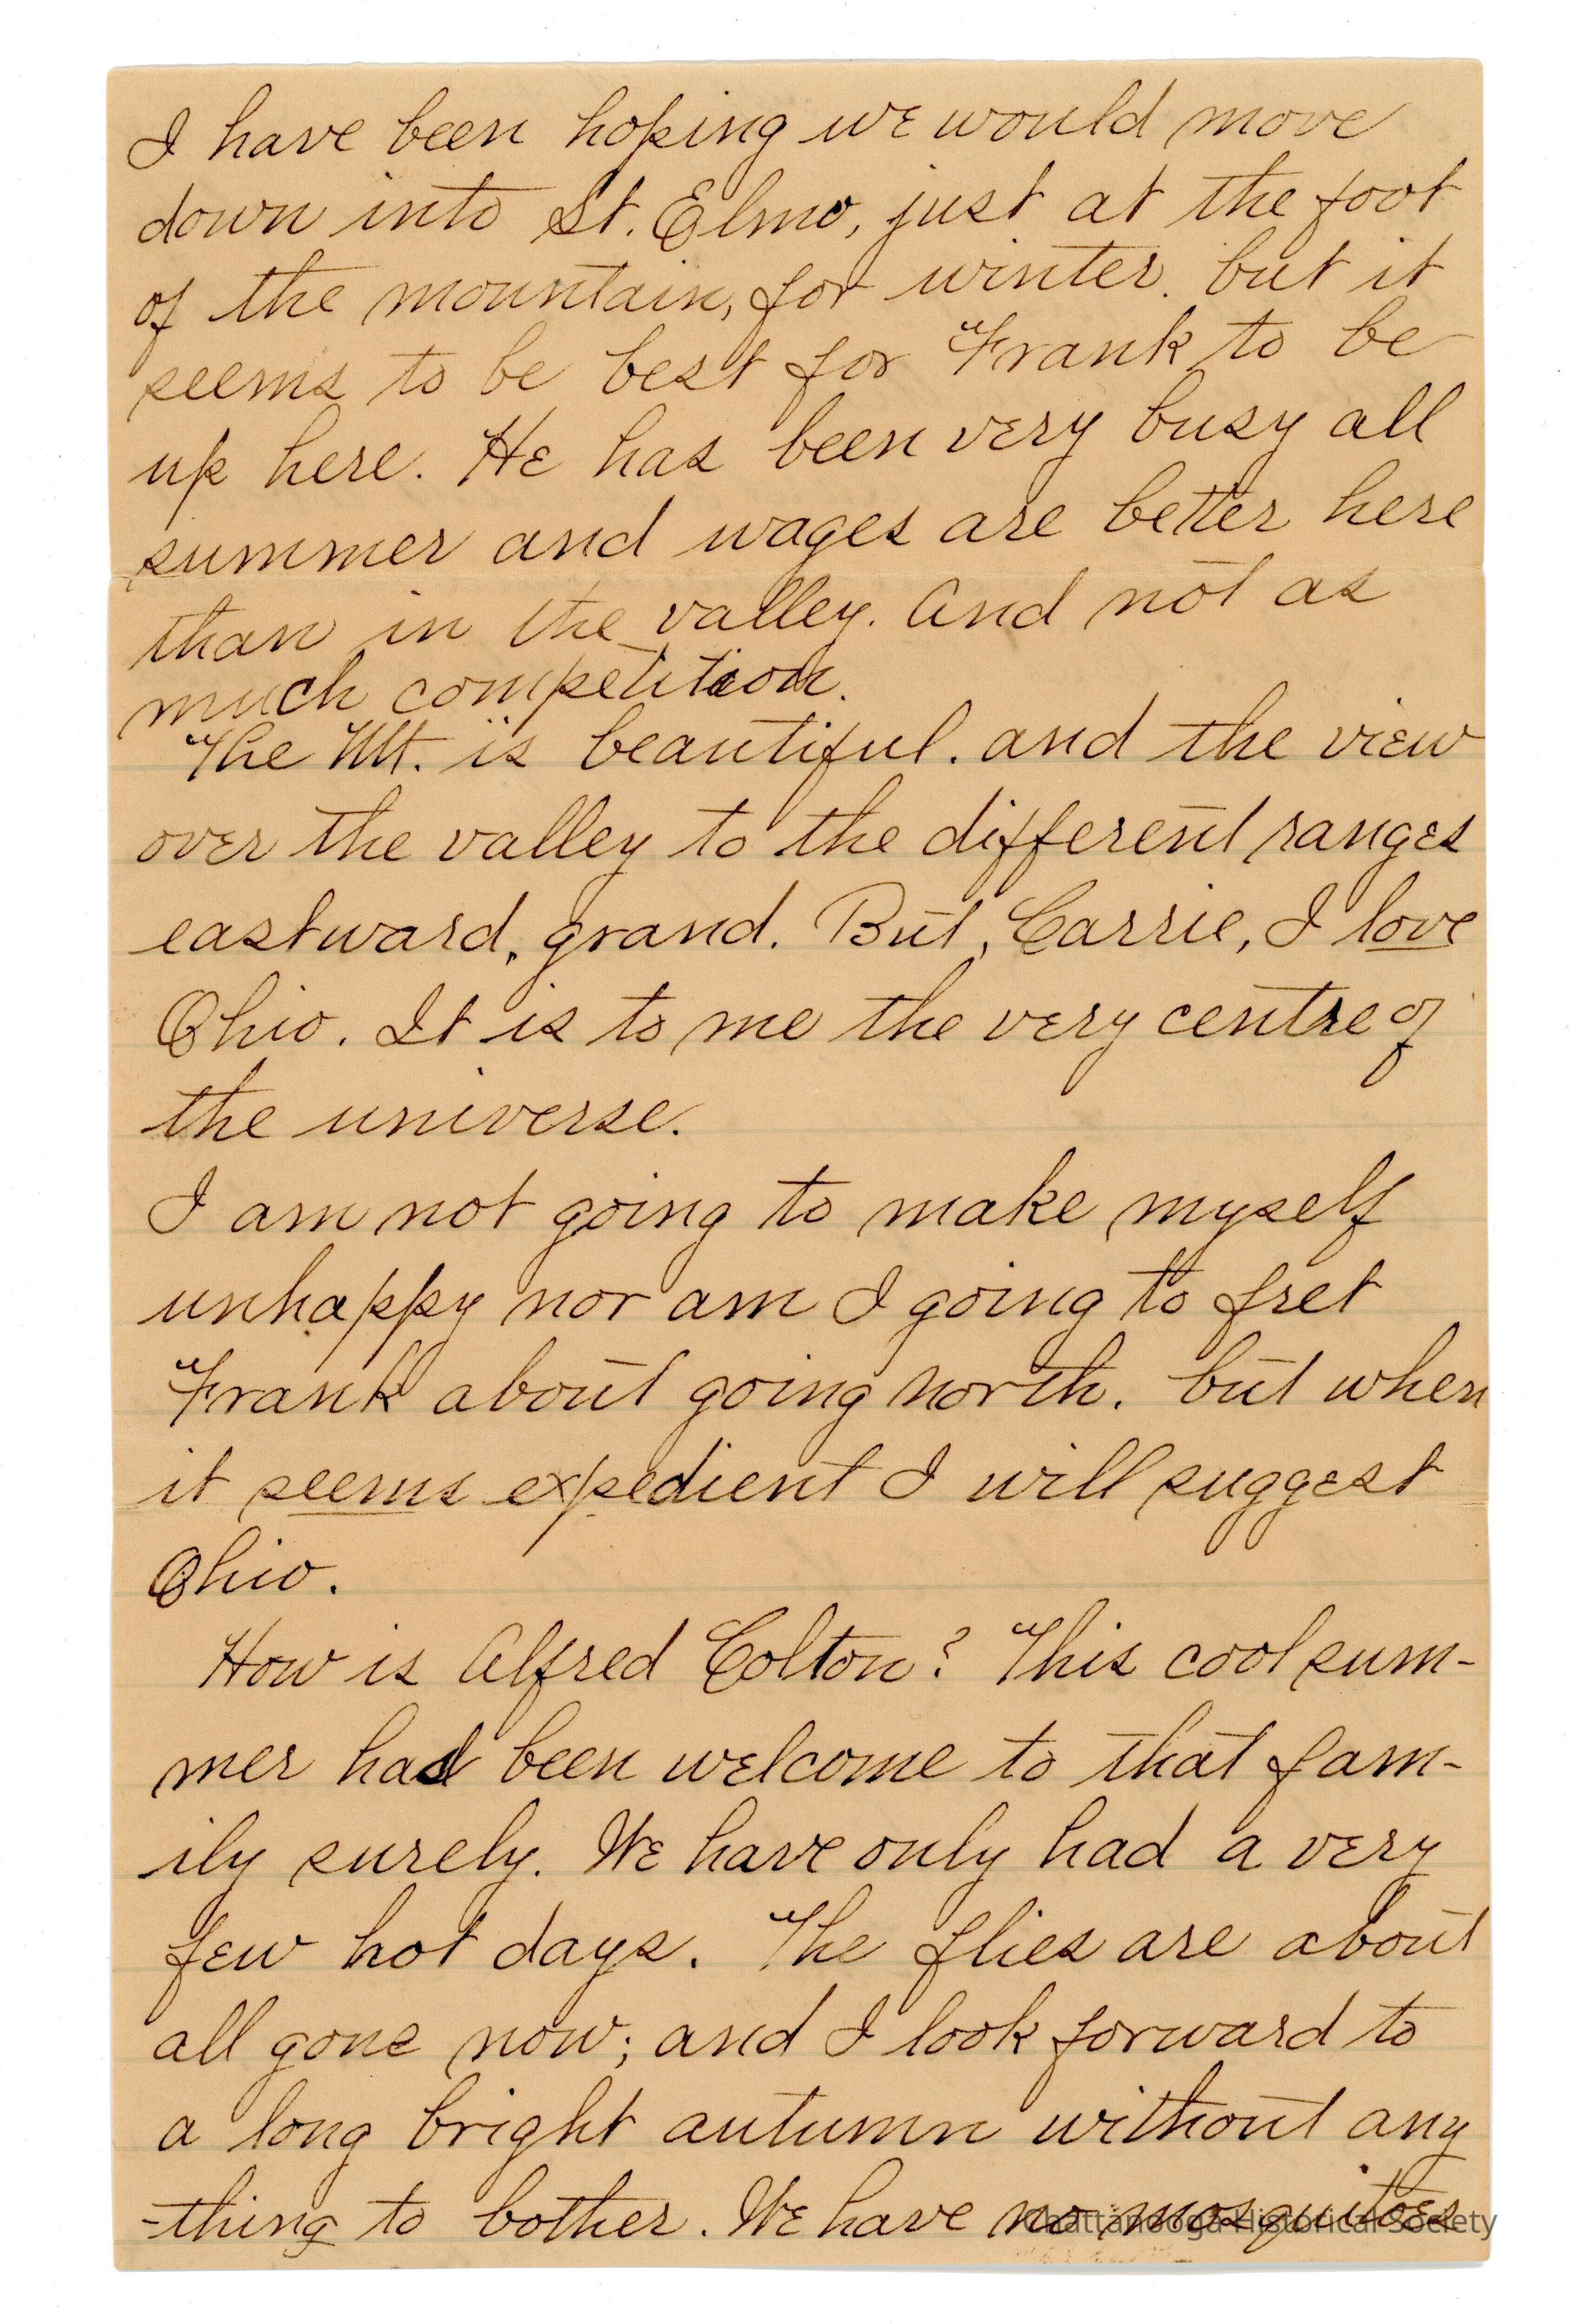 I have been hoping we would move
down into St. Elmo, just at the foot
of the mountain, for winter. but it
seems to be best for Frank to be
up here. He has been very busy all
summer and wages are better here
than in the valley. And not as
much competition.
The Mt. is beautiful. and the view
over the valley to the different ranges
eastward, grand. But, Carrie, I love
Ohio. It is to me the very centre of
the universe.
I am not going to make myself
unhappy nor am I going to fret
Frank about going north. but when
it seems expedient I will suggest
Ohio.
How is Alfred Colton? This cool sum-
mer had been welcome to that fam-
ily surely. We have only had a very
few hot days. The flies are about
all gone now; and I look forward to
a long bright autumn without any
-thing to bother. We have no mosquitoes
Chattanooga Historical Society